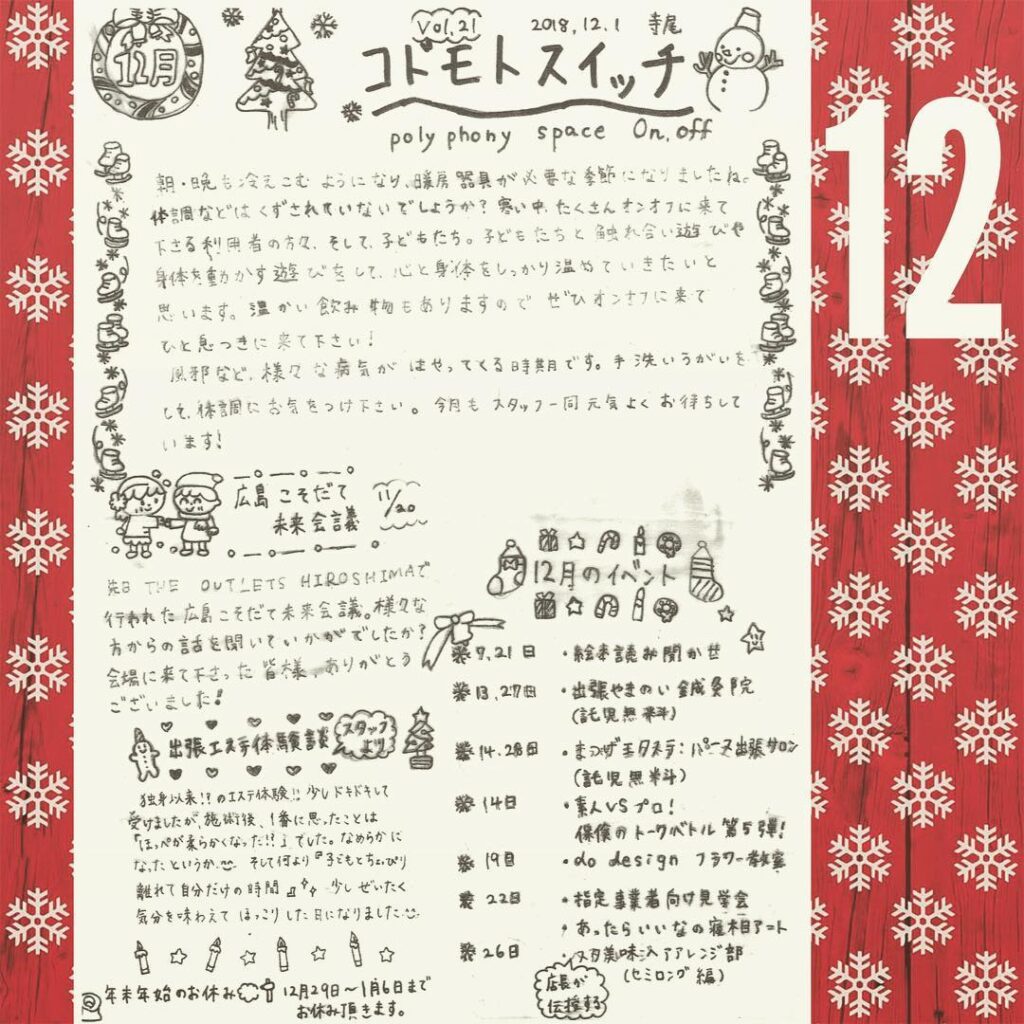 12月
Vol.21 2018.12.1 寺尾
コドモトスイッチ
polyphony space On,off
12
朝・晩も冷えこむようになり、暖房器具が必要な季節になりましたね。
体調などはくずされていないでしょうか?寒い中、たくさんオンオフに来て
下さる利用者の方々、そして、子どもたち。子どもたちと触れ合い遊びや
身体を動かす遊びをして、心と身体をしっかり温めていきたいと
思います。温かい飲み物もありますので ぜひオンオフに来て
ひと息つきに来て下さい!
風邪など、様々な病気がはやってくる時期です。手洗いうがいを
して、体調にお気をつけ下さい。今月もスタッフ一同元気よくお待ちして
います!
広島こそだて
未来会議
11/20
先日 THE OUTLETS HIROSHIMAで
行われた広島こそだて未来会議。様々な
方からの話を聞いていかがでしたか?
会場に来て下さった皆様、ありがとう
ございました!
出張エステ体験談
スタッフより
独身以来!?のエステ体験!!少しドキドキして
受けましたが、施術後、1番に思ったことは
「ほっぺが柔らかくなった!!」でした。なめらかに
なったというか そして何より『子どもとちょっぴり
離れて自分だけの時間』 少しぜいたく
気分を味わえて ほっこりした日になりました
年末年始のお休み 12月29日〜1月6日まで
お休み頂きます。
12月のイベント
7,21日 ・絵本読み聞かせ
13,27日 ・出張やまのい鍼灸院
(託児無料)
14.28日 ・まつげエクステ:パース出張サロン
(託児無料)
14日 ・素人VSプロ!
保険のトークバトル 第5弾!
19日 ・do design フラワー教室
22日 ・指定事業者向け見学会
・あったらいいなの寝相アート
26日 ・ヘアアレンジ部
(セミロング編)
店長が
伝授する